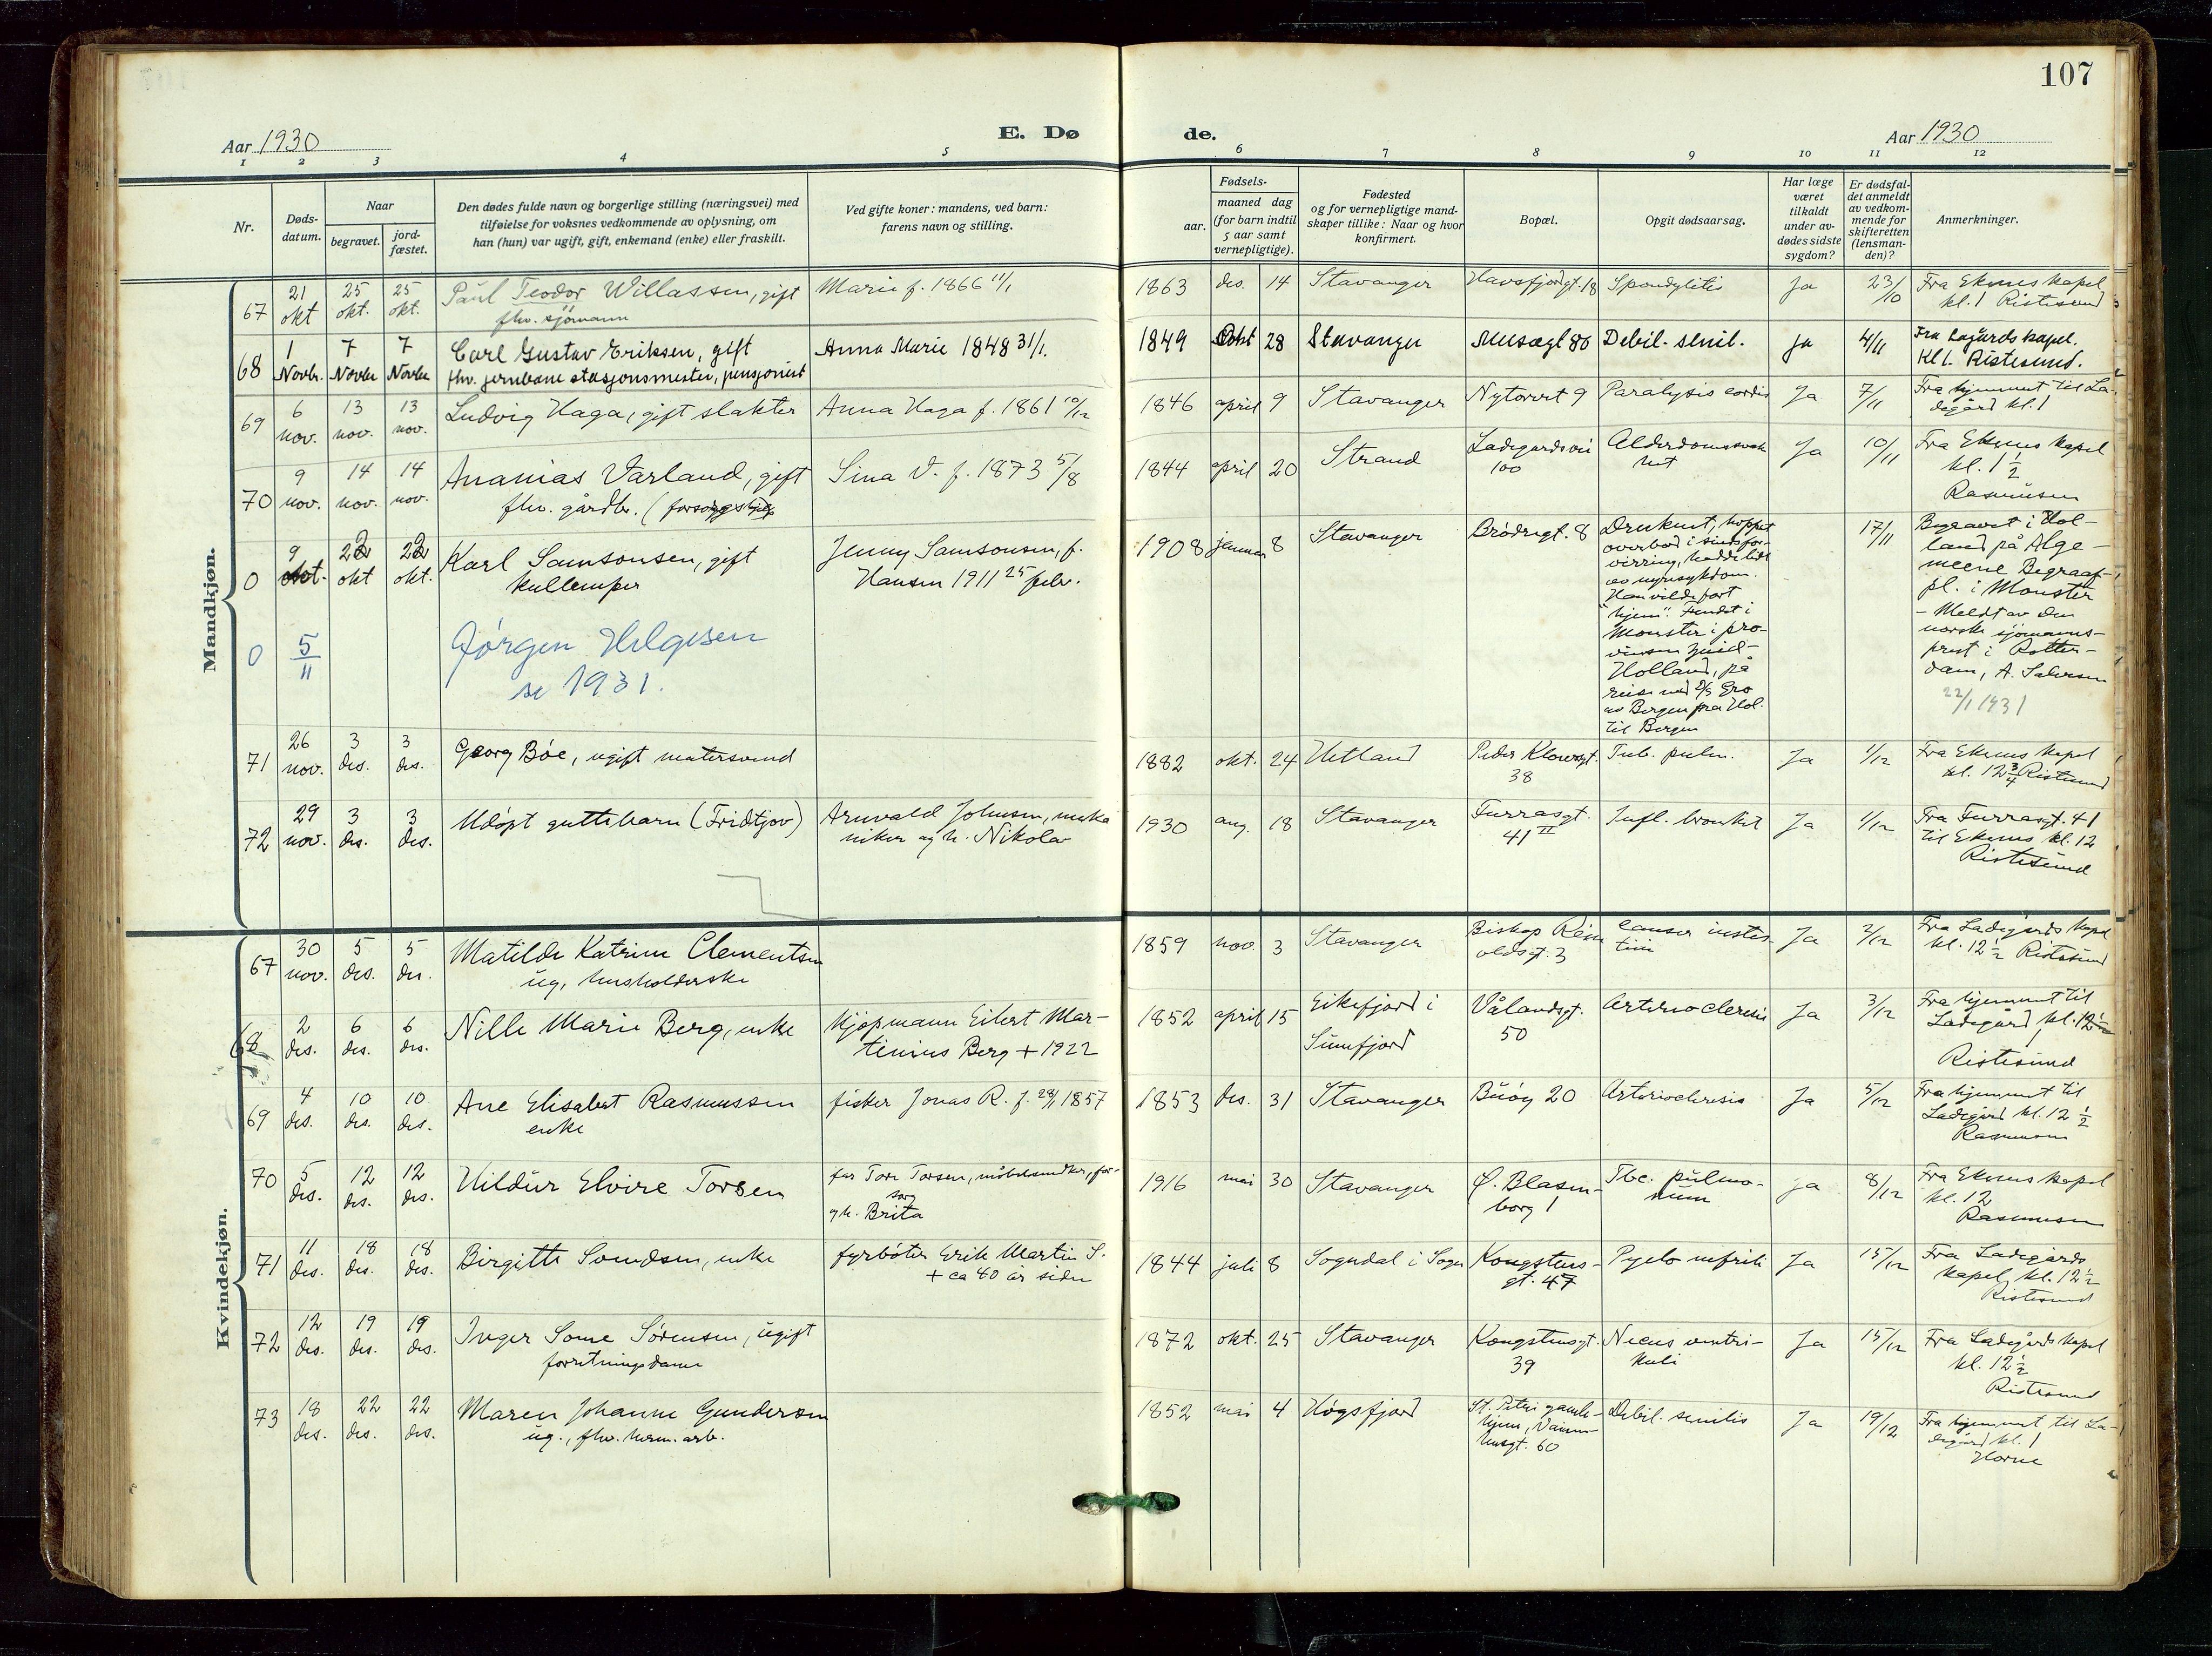 107
Aar 1930
E. Dø
de.
Aar 1930
1 2 3 4 5 6 7 8 9 10 11 12
Nr.
Døds-
datum.
Naar
begravet.
jord-
fæstet.
Den dødes fulde navn og borgerlige stilling (næringsvei) med
tilføielse for voksnes vedkommende av oplysning, om
han (hun) var ugift, gift, enkemand (enke) eller fraskilt.
Ved gifte koner: mandens, ved barn:
farens navn og stilling.
Fødsels-
aar.
maaned dag
(for barn indtil
5 aar samt
vernepligtige).
Fødested
og for vernepligtige mand-
skaper tillike: Naar og hvor
konfirmert.
Bopæl.
Opgit dødsaarsag.
Har læge
været
tilkaldt
under av-
dødes sidste
sygdom?
Er dødsfal-
det anmeldt
av vedkom-
mende for
skifteretten
(lensman-
den)?
Anmerkninger.
Mandkjøn.
67 21 okt 25 okt. 25 okt. Paul Teodor Willassen, gift
fhv. sjømann
Marie f. 1866 11/1
1863 des. 14 Stavanger Havsfjordgt. 18 Spondylitis Ja 23/10 Fra Ekenes kapel
kl. 1 Ristesund
68 1 Novbr. 7 Novbr 7 Novbr Carl Gustav Eriksen, gift
fhv. jernbane stasjonsmester, pensjonist
Anna Marie 1848 31/1.
1849 Okt 28 Stavanger Musægt 80 Debil. senil. Ja 4/11 Fra Lagårds kapel.
Kl 1. Ristesund.
69 6 nov. 13 nov. 13 nov. Ludvig Haga, gift slakter
Anna Haga f. 1861 10/12
1846 april 9 Stavanger Nytorvet 9 Paralysis cordis Ja 7/11 Fra hjemmet til La-
degård kl. 1
70 9 nov. 14 nov. 14 nov. Ananias Varland, gift
fhv. gårdbr. (forsorgshj.
Sina V. f. 1873 5/8
1844 april 20 Strand Ladegårdsvei
100
Alderdomssvak
het
Ja 10/11 Fra Ekenes kapel
kl. 1 1/2
Rasmussen
0 9 okt. 22 okt 22 okt. Karl Samsonsen, gift
kullemper
Jenny Samsonsen, f.
Hansen 1911 25 febr.
1908 januar 8 Stavanger Brødregt. 8 Druknet, hoppet
overbord i sindsfor-
virring, hadde lidt
av nyresykdom.
Han vilde fort
"hjem". Fundet i
Monster i pro-
vinsen Zuid-
Holland, på
reise med D/S Gro
av Bergen fra Hol.
til Bergen
17/11 Begravet i Hol-
land på Alge-
meene Begraaf-
pl. i Monster
- Meldt av den
norske sjømanns-
prest i Rotter-
dam, A. Salvesen
22/1 1931
0 5/11 Jørgen Helgesen
se 1931.
71 26 nov. 3 des. 3 des. Georg Bøe, ugift matersvend
1882 okt. 24 Hetland Peder Klowsgt.
38
Tub. pulm. Ja 1/12 Fra Ekenes kapel
kl. 12 3/4 Ristesund
72 29 nov. 3 des. 3 des. Udøpt guttebarn (Fridtjov)
Arnvald Johnsen, meka
niker og h. Nikola
1930 aug. 18 Stavanger Furrasgt.
41 II
Infl. bronkit Ja 1/12 Fra Furrasgt. 41
til Ekenes kl. 12
Ristesund
Kvindekjøn.
67 30 nov. 5 des. 5 des. Matilde Katrine Clementsen
ug, husholderske
1859 nov. 3 Stavanger Biskop Rein
oldsgt. 3
cancer intes
tini
Ja 2/12 Fra Ladegårds kapel
kl. 12 1/2 Ristesund
68 2 des. 6 des. 6 des. Nille Marie Berg, enke
Kjøpmann Eilert Mar-
tinius Berg + 1922
1852 april 15 Eikefjord i
Sunnfjord
Vålandsgt.
50
Arteriosclerosis Ja 3/12 Fra hjemmet til
Ladegård kl. 12 1/2
Ristesund
69 4 des. 10 des. 10 des. Ane Elisabet Rasmussen
enke
fisker Jonas R. f. 28/1 1857
1853 des. 31 Stavanger Buøy 20 Arteriosclerosis Ja 5/12 Fra hjemmet til
Ladegård kl. 12 1/2
Rasmussen
70 5 des. 12 des. 12 des. Hildur Elvire Torsen
far Tore Torsen, møbelsnedker, for-
sørg
og h. Brita
1916 mai 30 Stavanger Ø. Blasen-
borg 1
Tbc. pulmo-
num
Ja 8/12 Fra Ekenes kapel
kl. 12
Rasmussen
71 11 des. 18 des. 18 des. Birgitte Svendsen, enke
fyrbøter Erik Martin S.
+ ca 40 år siden
1844 juli 8 Sogndal i Sogn Kongstens-
gt. 47
Pyelo nefrit Ja 15/12 Fra Ladegårds
kapel kl. 12 1/2
Ristesund
72 12 des. 19 des. 19 des. Inger Some Sørensen, ugift
forretningsdame
1872 okt. 25 Stavanger Kongstensgt.
39
ventri-
kuli
Ja 15/12 Fra Ladegårds kapel
kl. 12 1/2
Ristesund
73 18 des. 22 des. 22 des. Maren Johanne Gundersen
ug., fhv. herm. arb.
1852 mai 4 Høgsfjord St. Petri gamle-
hjem, Vaisen-
husgt. 60
Debil. senilis Ja 19/12 Fra hjemmet til La-
degård kl. 1
Horne